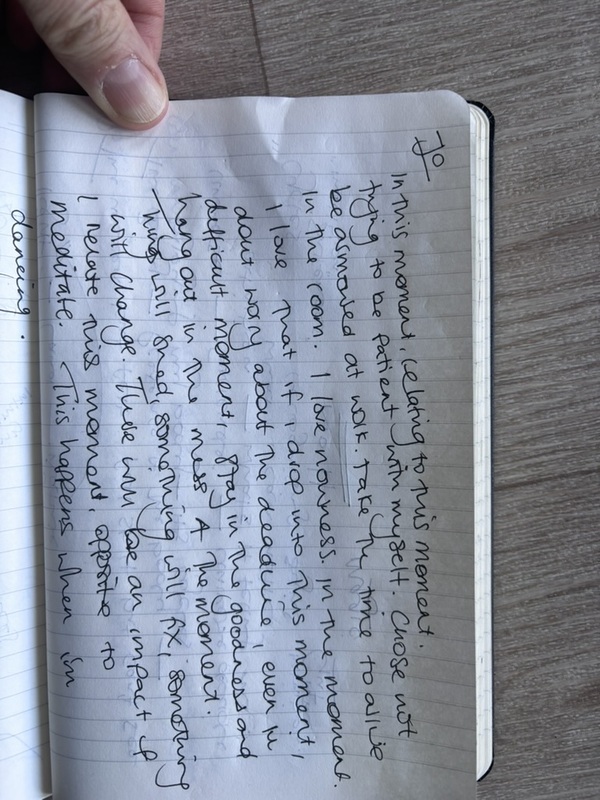 Jo
In this moment, relating to this moment.
trying to be patient with myself. Chose not
be armored at work. Take the time to arrive
in the room. I love nowness. In the moment.
I love that if i drop into this moment,
dont worry about the deadline, even in
difficult moment, stay in the goodness and
hang out in the mess & the moment.
things will shed, something will fix, something
will change. There will be an impact if
I relate this moment, opposite to
meditate. This happens when im
dancing.